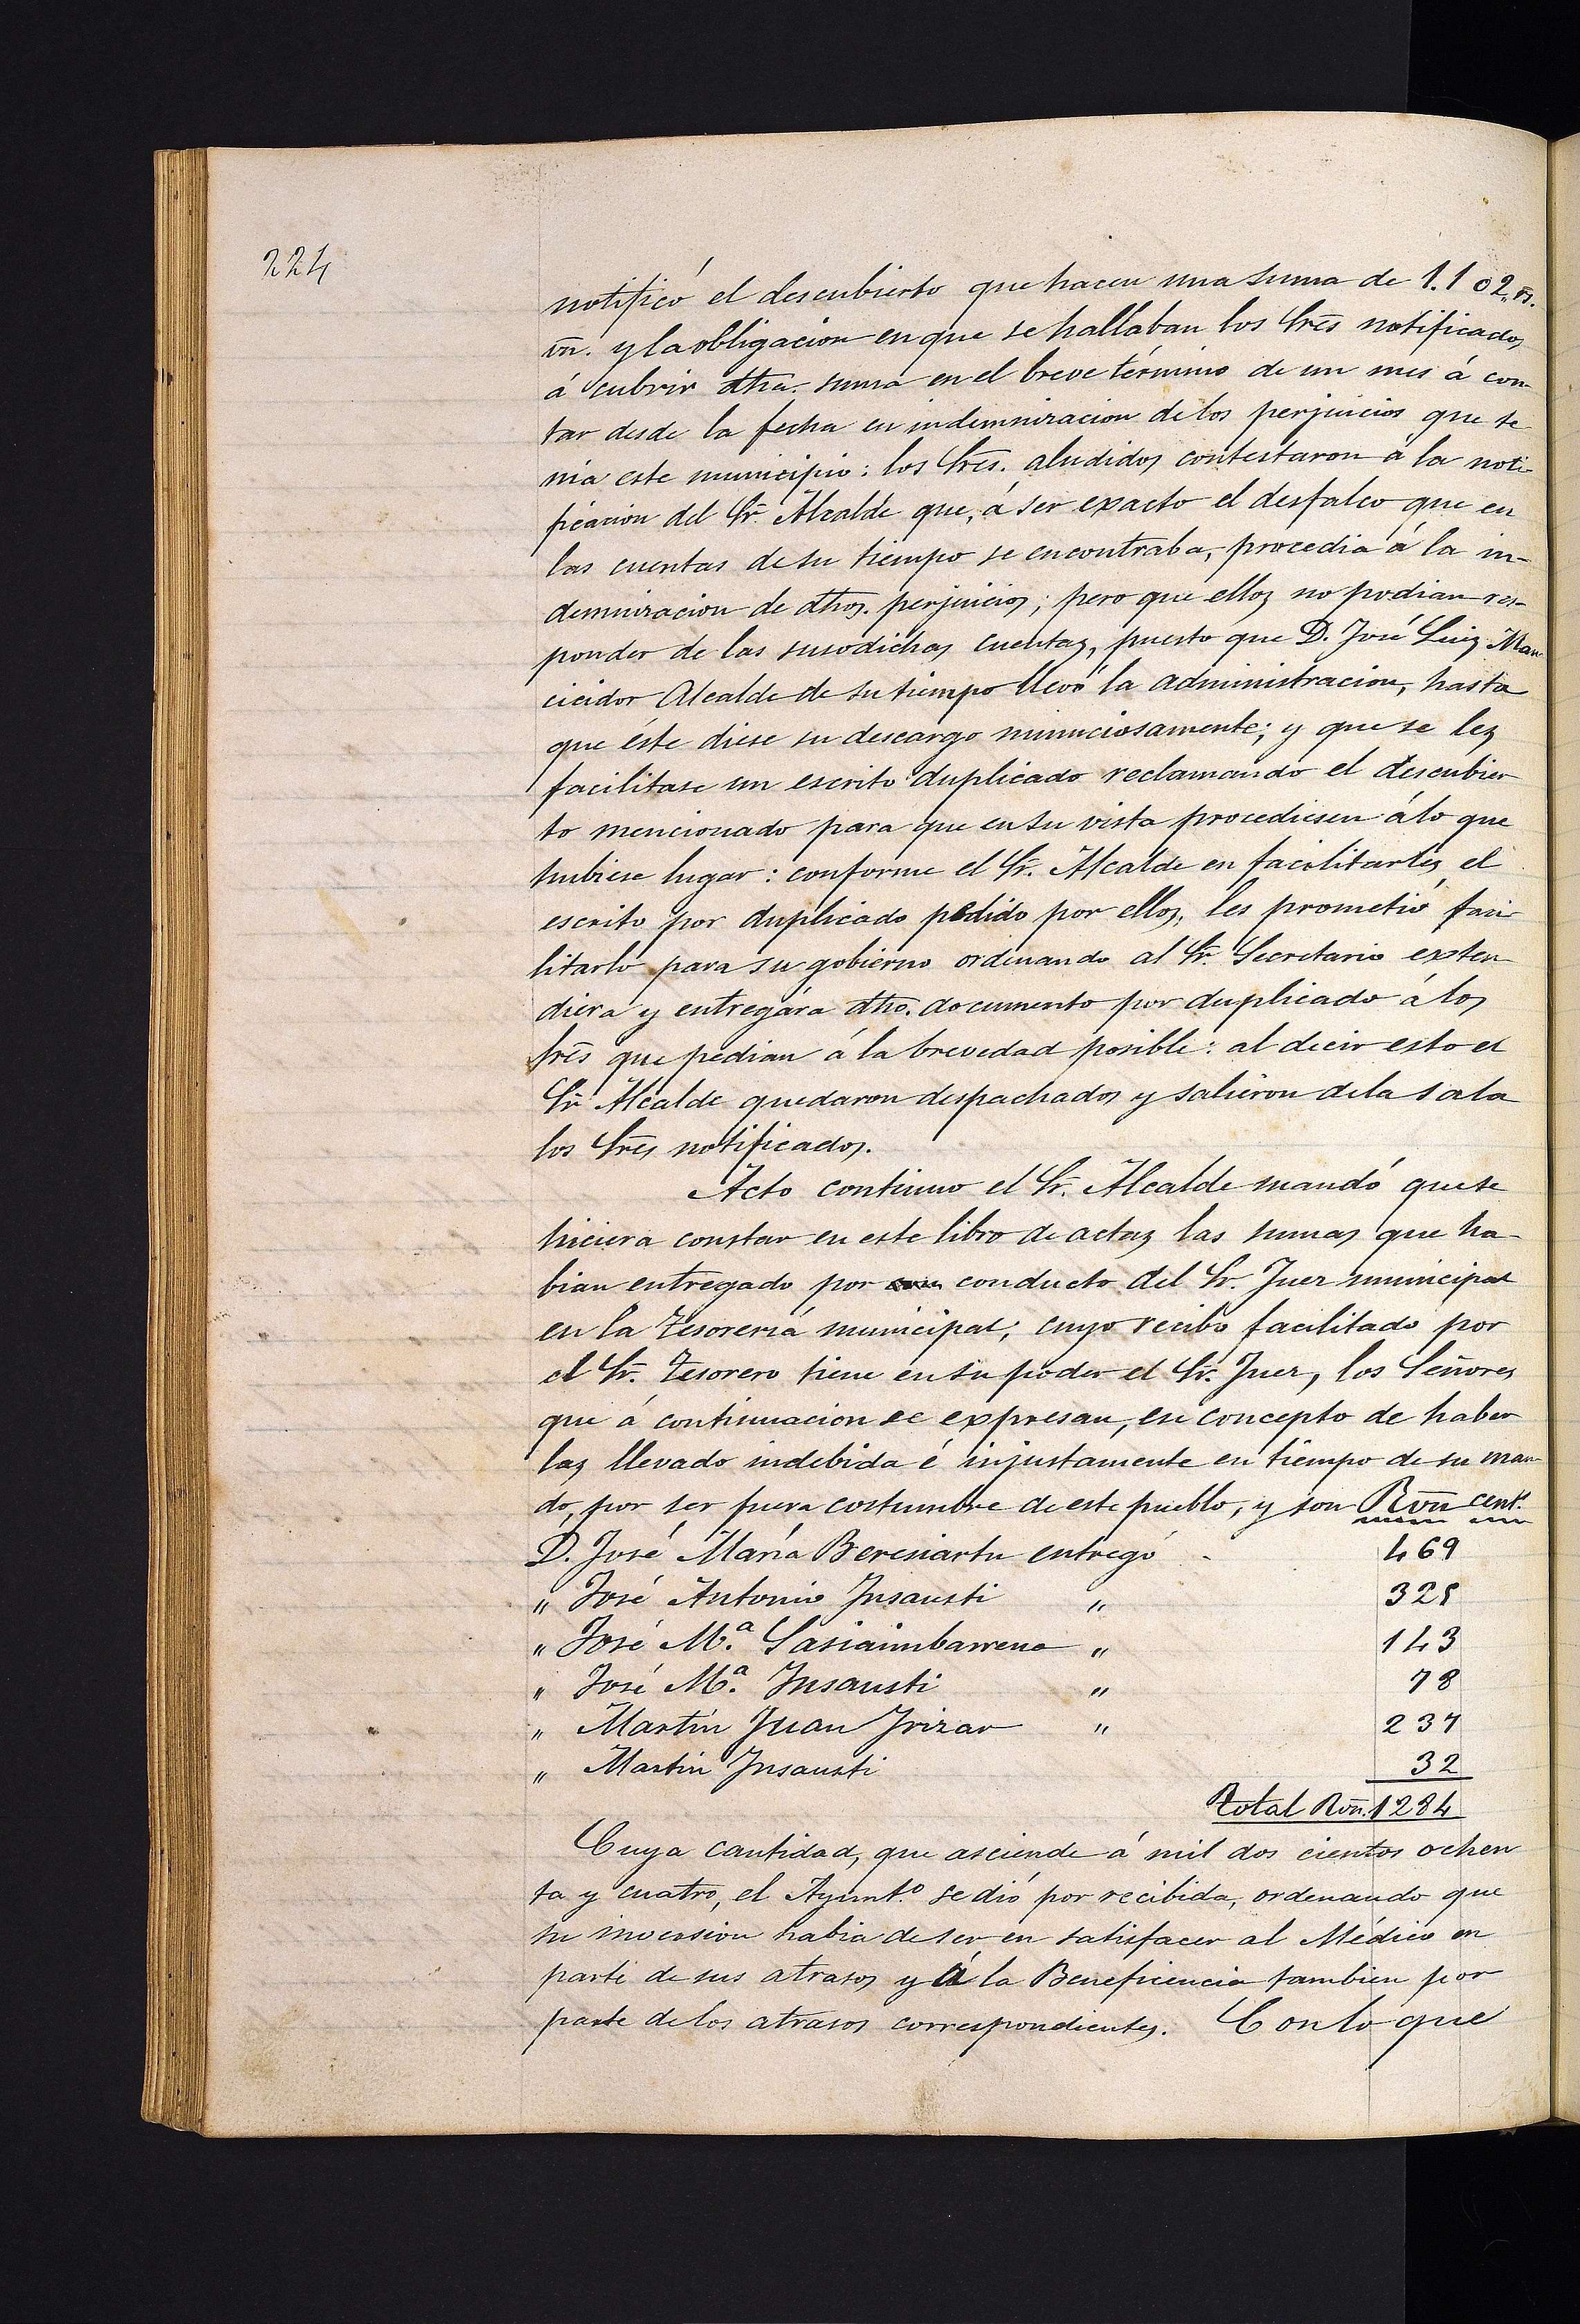 224
notificó el descubierto que hacen una suma de 1.102,, rs.
vn. y la obligacion en que se hallaban los Sres notificados
á cubrir dha. suma en el breve término de un mes á con-
tar desde la fecha en indemnizacion de los perjuicios que te
nia este municipio: los Sres. aludidos contestaron á la noti-
ficacion del Sr. Alcalde que, á ser exacto el desfalco que en
las cuentas de su tiempo se encontraba, procedia á la in-
demnizacion de dhos. perjuicios; pero que ellos no podian res-
ponder de las susodichas cuentas, puesto que D. José Luis Man
cicidor Alcalde de su tiempo llevó la administracion, hasta
que éste diese su descargo minuciosamente; y que se les
facilitase un escrito duplicado reclamando el descubier-
to mencionado para que en su vista procediesen á lo que
hubiese lugar: conforme el Sr. Alcalde en facilitarles el
escrito por duplicado pedido por ellos, les prometió faci-
litarlo para su gobierno ordenando al Sr. Secretario exten-
diera y entregára dho. documento por duplicado á los
Sres que pedian á la brevedad posible: al decir esto el
Sr Alcalde quedaron despachados y salieron de la sala
los Sres notificados.
Acto continuo el Sr. Alcalde mandó que se
hiciera constar en este libro de actas las sumas que ha-
bian entregado por conducto del Sr. Juez municipal
en la Tesoreria municipal; cuyo recibo facilitado por
el Sr. Tesorero tiene en su poder el Sr. Juez, los Señores
que á continuacion se expresan, en concepto de haber
las llevado indebida é injustamente en tiempo de su man-
do, por ser fuera costumbre de este pueblo, y son Rvn cent.
D. José María Beresiartu entregó - 469
" José Antonio Insausti " 325
" José M.ª Sasiaimbarrena " 143
" José M.ª Insausti " 78
" Martin Juan Irizar " 237
" Martin Insausti 32
Total Rvn. 1284
Cuya cantidad, que asciende á mil dos cientos ochen
ta y cuatro, el Ayunt.º se dió por recibida, ordenando que
su inversion habia de ser en satisfacer al Médico en
parte de sus atrasos y á la Beneficencia tambien por
parte de los atrasos correspondientes. Con lo que